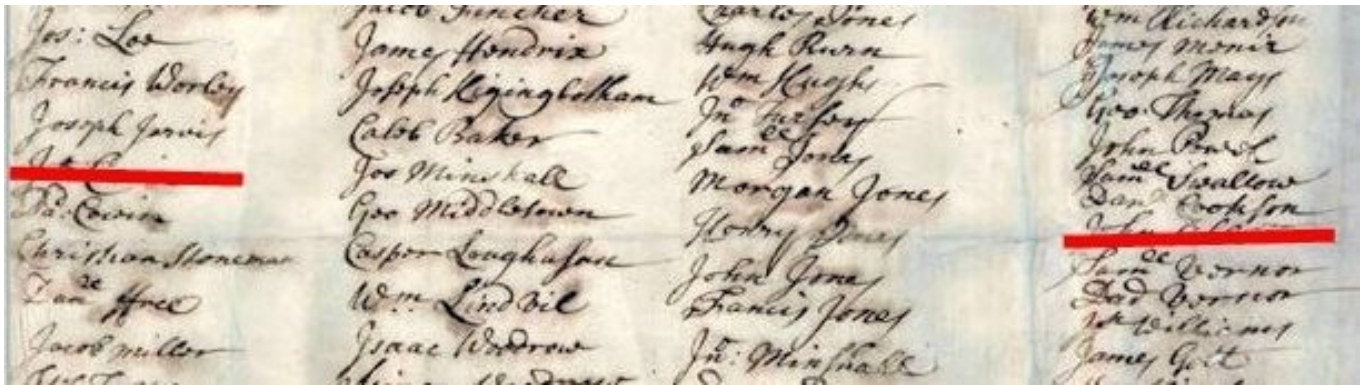 Jos: Loe
Francis Worley
Joseph Jarvis
Christian Stoneman
Danle ffree
Jacob miller
Jacob Fincher
James Hendrix
Joseph Higinbotham
Caleb Baker
Jos Minshall
Geo Middletown
Casper Laughaſan
Wm. Lindvil
Isaac Woodrow
Charles Jones
Hugh Burn
Wm Hughs
Samle Jones
Morgan Jones
Henry Jones
John Jones
Francis Jones
Jno: Minshall
Wm Richardson
James
Joseph Mays
Geo: Thomas
John Powel
Samle Swallow
Danl Cookson
Samle Vernor
Dad Vernor
James Gitt